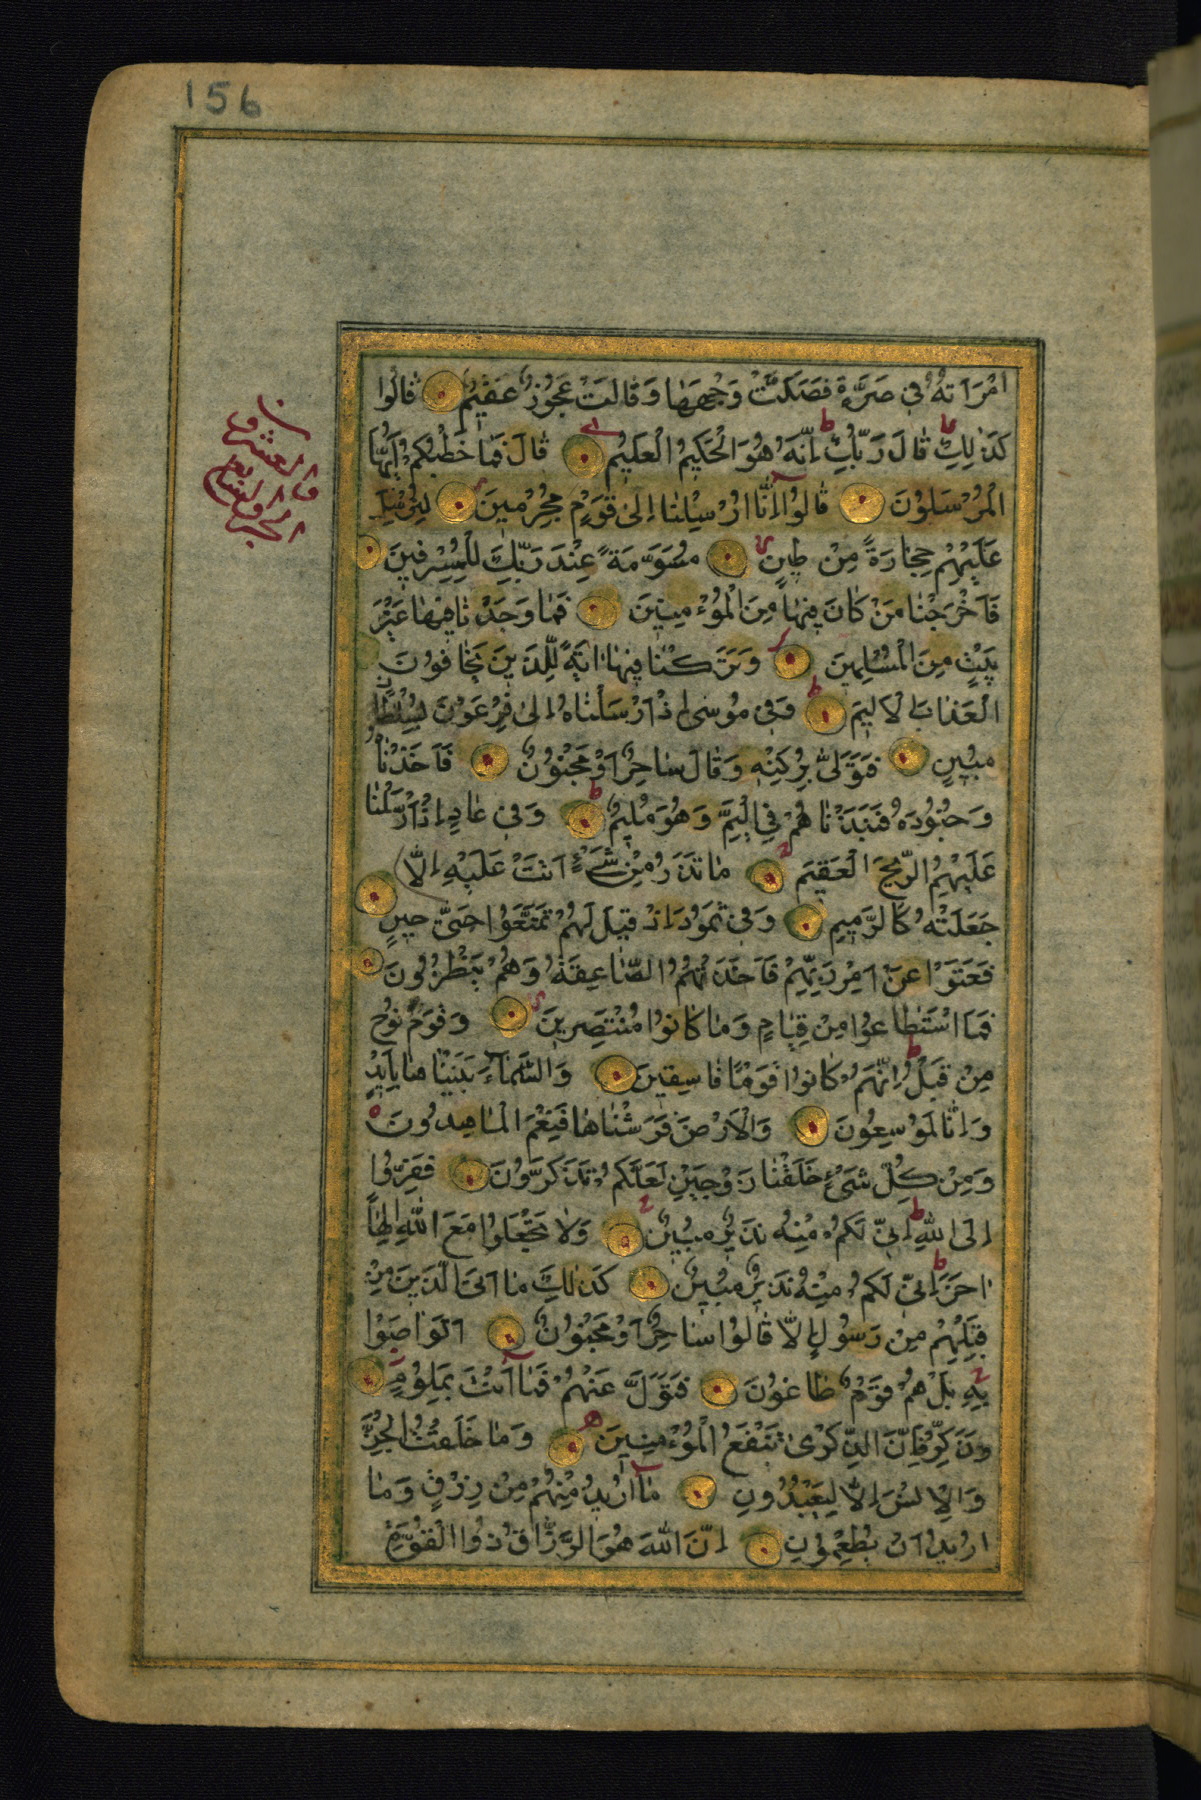 156
امْرَاَتُهُ فِى صَرَّةٍ فَصَكَّتْ وَجْهَهَا وَقَالَتْ عَجُوزٌ عَقِيمٌ قَالُوا
كَذٰلِكِ قَالَ رَبُّكِ اِنَّهُ هُوَ الْحَكِيمُ الْعَلِيمُ قَالَ فَمَا خَطْبُكُمْ اَيُّهَا
الْمُرْسَلُونَ قَالُوا اِنَّا اُرْسِلْنَا اِلىٰ قَوْمٍ مُجْرِمِينَ لِنُرْسِلَ
عَلَيْهِمْ حِجَارَةً مِنْ طِينٍ مُسَوَّمَةً عِنْدَ رَبِّكَ لِلْمُسْرِفِينَ
فَاَخْرَجْنَا مَنْ كَانَ فِيهَا مِنَ الْمُؤْمِنِينَ فَمَا وَجَدْنَا فِيهَا غَيْرَ
بَيْتٍ مِنَ الْمُسْلِمِينَ وَتَرَكْنَا فِيهَا اٰيَةً لِلَّذِينَ يَخَافُونَ
الْعَذَابَ الْاَلِيمَ وَفِى مُوسٰى اِذْ اَرْسَلْنَاهُ اِلىٰ فِرْعَوْنَ بِسُلْطَانٍ
مُبِينٍ فَتَوَلّٰى بِرُكْنِهِ وَقَالَ سَاحِرٌ اَوْ مَجْنُونٌ فَاَخَذْنَاهُ
وَجُنُودَهُ فَنَبَذْنَاهُمْ فِى الْيَمِّ وَهُوَ مُلِيمٌ وَفِى عَادٍ اِذْ اَرْسَلْنَا
عَلَيْهِمُ الرِّيحَ الْعَقِيمَ مَا تَذَرُ مِنْ شَىْءٍ اَتَتْ عَلَيْهِ اِلَّا
جَعَلَتْهُ كَالرَّمِيمِ وَفِى ثَمُودَ اِذْ قِيلَ لَهُمْ تَمَتَّعُوا حَتّٰى حِينٍ
فَعَتَوْا عَنْ اَمْرِ رَبِّهِمْ فَاَخَذَتْهُمُ الصَّاعِقَةُ وَهُمْ يَنْظُرُونَ
فَمَا اسْتَطَاعُوا مِنْ قِيَامٍ وَمَا كَانُوا مُنْتَصِرِينَ وَقَوْمَ نُوحٍ
مِنْ قَبْلُ اِنَّهُمْ كَانُوا قَوْمًا فَاسِقِينَ وَالسَّمَاءَ بَنَيْنَاهَا بِاَيْدٍ
وَاِنَّا لَمُوسِعُونَ وَالْاَرْضَ فَرَشْنَاهَا فَنِعْمَ الْمَاهِدُونَ
وَمِنْ كُلِّ شَىْءٍ خَلَقْنَا زَوْجَيْنِ لَعَلَّكُمْ تَذَكَّرُونَ فَفِرُّوا
اِلَى اللّٰهِ اِنِّى لَكُمْ مِنْهُ نَذِيرٌ مُبِينٌ وَلَا تَجْعَلُوا مَعَ اللّٰهِ اِلٰهًا
اٰخَرَ اِنِّى لَكُمْ مِنْهُ نَذِيرٌ مُبِينٌ كَذٰلِكَ مَا اَتَى الَّذِينَ مِنْ
قَبْلِهِمْ مِنْ رَسُولٍ اِلَّا قَالُوا سَاحِرٌ اَوْ مَجْنُونٌ اَتَوَاصَوْا
بِهِ بَلْ هُمْ قَوْمٌ طَاغُونَ فَتَوَلَّ عَنْهُمْ فَمَا اَنْتَ بِمَلُومٍ
وَذَكِّرْ فَاِنَّ الذِّكْرىٰ تَنْفَعُ الْمُؤْمِنِينَ وَمَا خَلَقْتُ الْجِنَّ
وَالْاِنْسَ اِلَّا لِيَعْبُدُونِ مَا اُرِيدُ مِنْهُمْ مِنْ رِزْقٍ وَمَا
اُرِيدُ اَنْ يُطْعِمُونِ اِنَّ اللّٰهَ هُوَ الرَّزَّاقُ ذُو الْقُوَّةِ